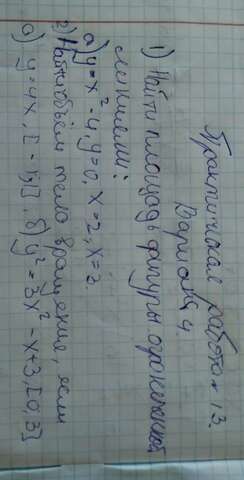 Практическая работа № 13.
Вариант 4.
1) Найти площадь фигуры ограниченной
линиями:
а) y = x² - 4, y = 0, x = 2, x = 3.
2) Найти объем тела вращение, если
а) y = 4x, [-1; 1], б) y² = 3x² - x + 3, [0, 3]